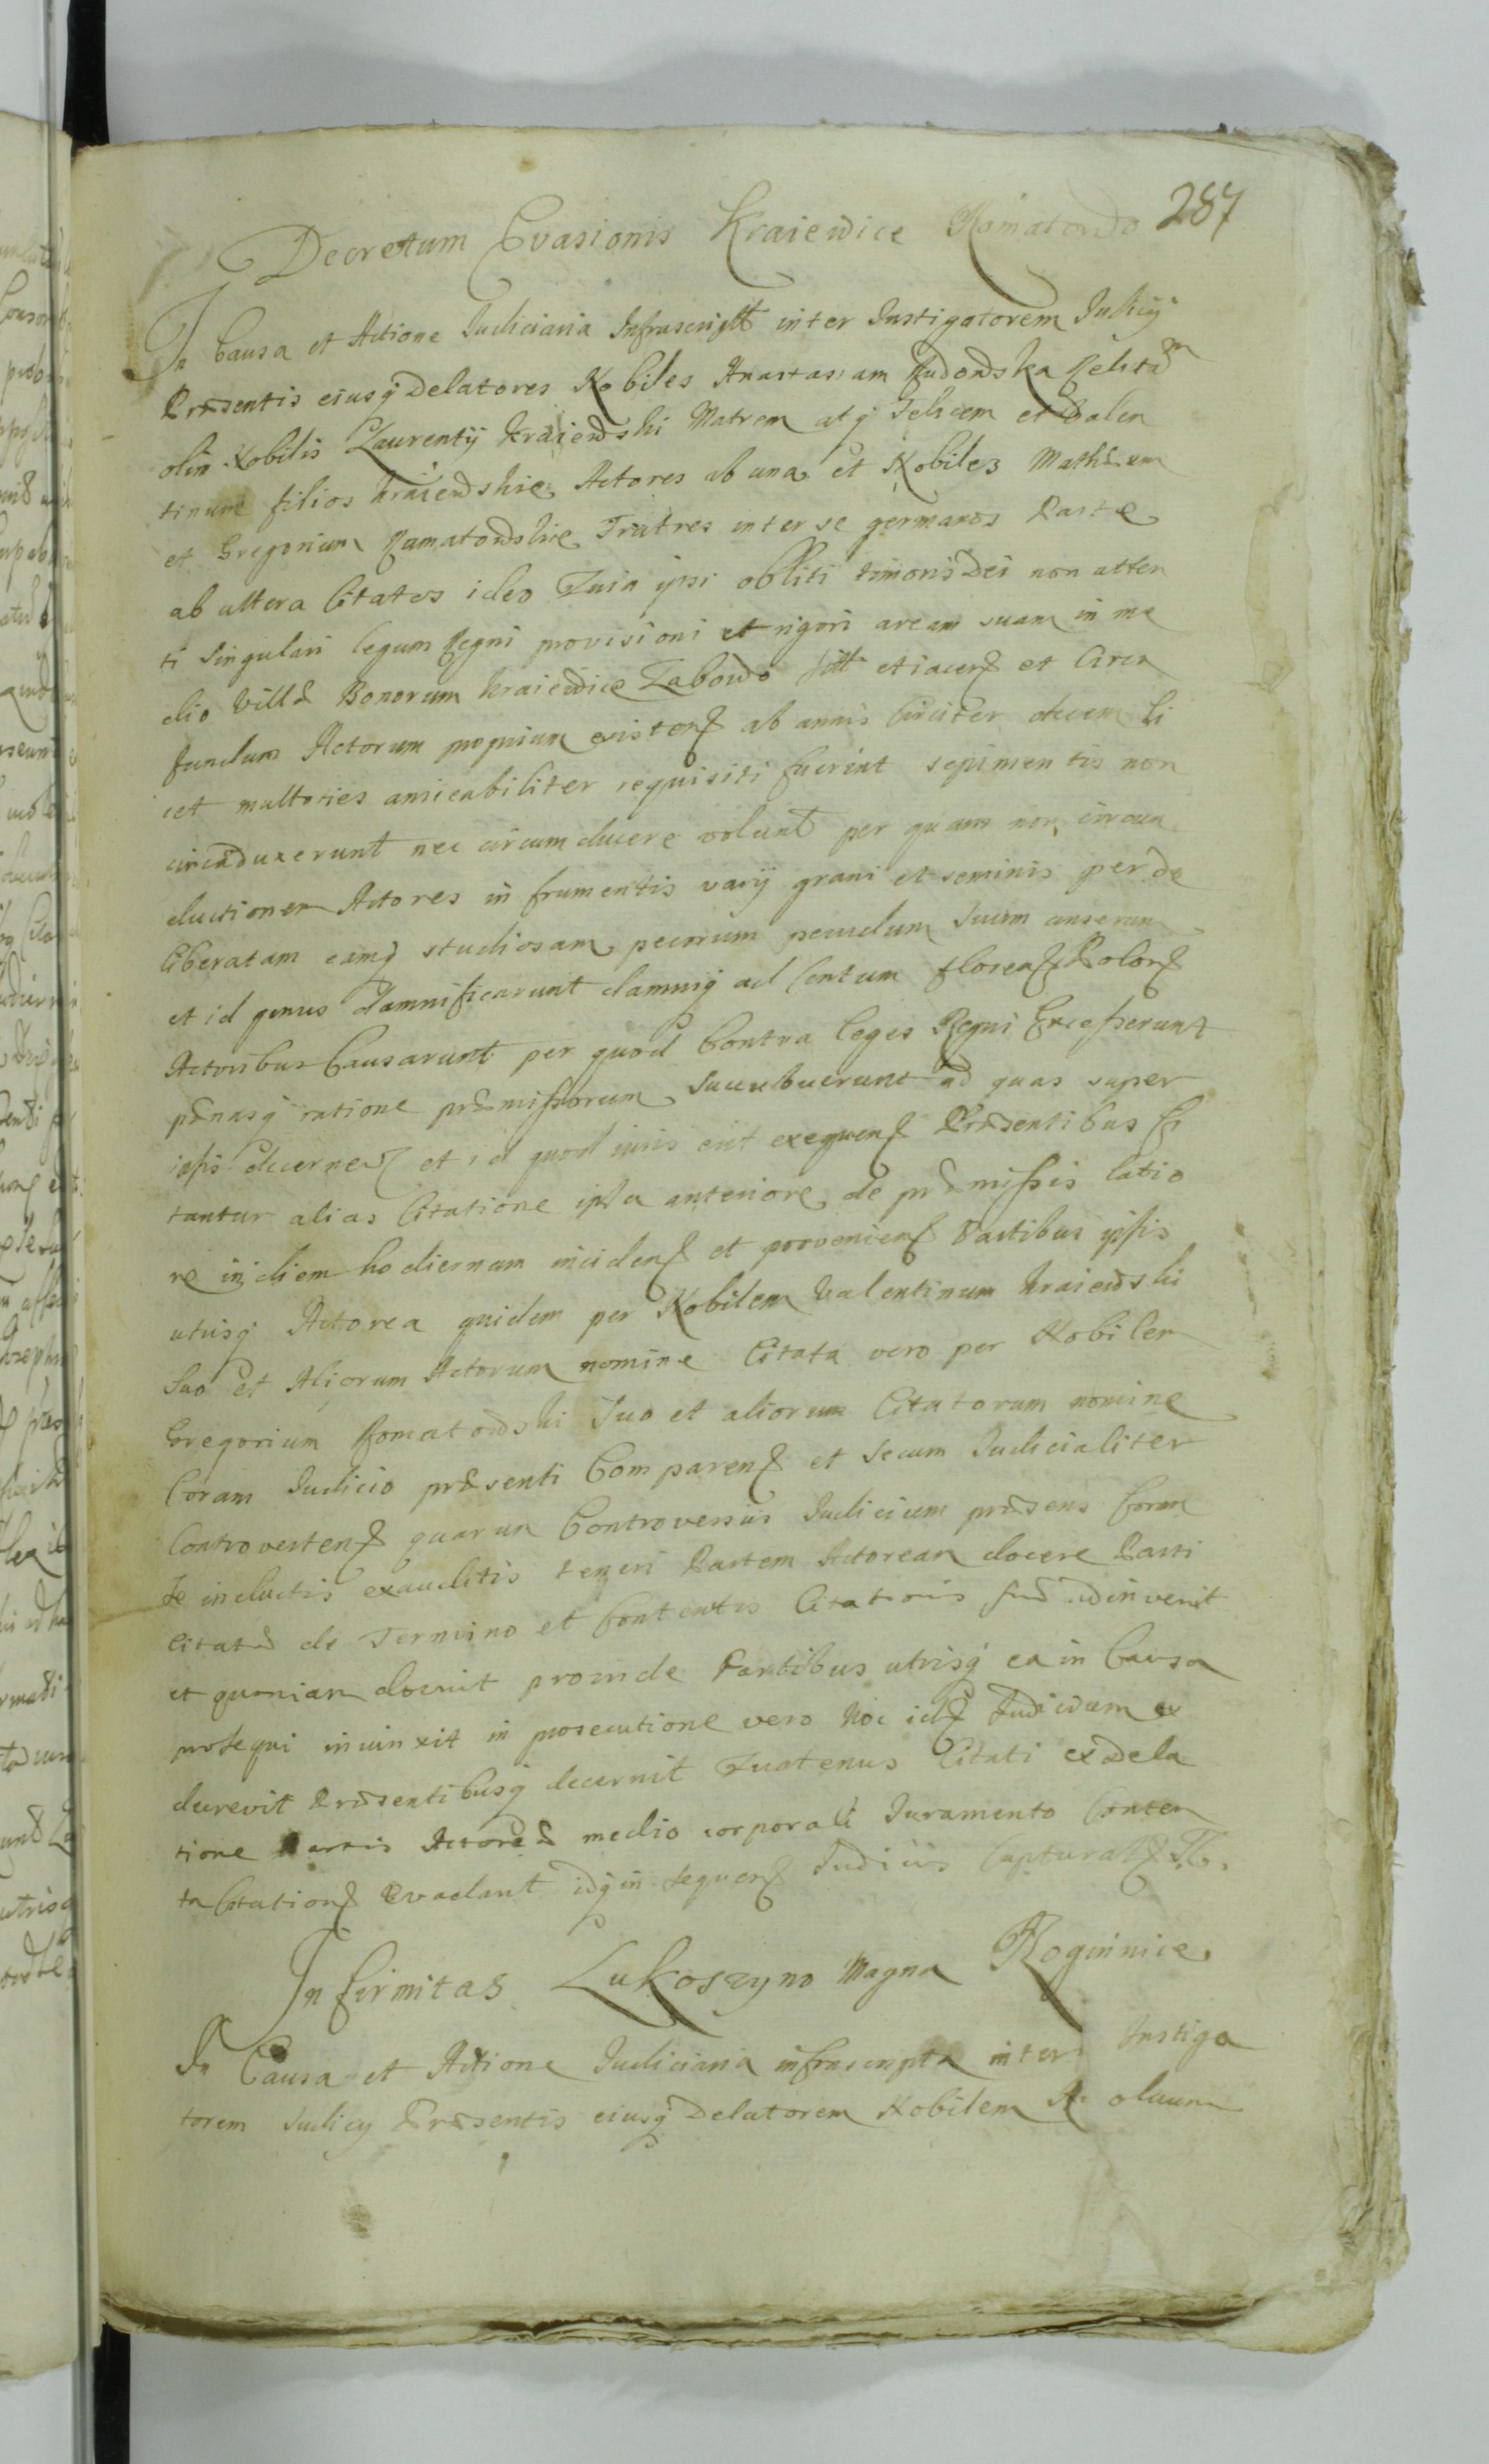 287
Decretum Evasionis Kraiewice Romatowo
In Causa et Actione Judiciaria Infrascript inter Instigatorem Judicij
Præsentis eiusq Delatores Nobiles Anastasiam Relictam
olim Nobilis Laurentij Kraiewski Matrem atq Felicem et Valen
tinum filios Kraiewskie Actores ab una et Nobiles Mathæum
et Gregorium Ramatowskie Fratres inter se germanos Parte
ab altera Citatos ideo Quia ipsi obliti timoris Dei non atten
ti singulari legum Regni provisioni et rigori aream suam in me
dio Villæ Bonorum Kraiewice et iacen et Circa
fundum Actorum proprium existen ab annis Circiter decem li
cet multoties amicabiliter requisiti fuerint sepimentis non
circuduxerunt nec circumducere volunt per quam non circum
ductionem Actores in frumentis varij grani et seminis per de
liberatam eamq studiosam pecorum pecudum Suum anserum
et id genus damnificarunt damnuq ad Centum floren Polon
Actoribus Causarunt per quod Contra leges Regni Excesserunt
pænasq ratione præmissorum Succubuerunt ad quas super
ipsis decernen et id quod iuris erit exequen Præsentibus Ci
tantur alias Citatione ipsa anteriore de præmissis latio
re in diem hodiernam inciden et provenien Partibus ipsis
utrisq Actorea quidem per Nobilem Valentinum Kraiewski
Suo et Aliorum Actorum nomine Citata vero per Nobilem
Gregorium Romatowski Suo et aliorum Citatorum nomine
Coram Judicio præsenti Comparen et Secum Judicialiter
Controverten quarum Controversiis Judicium præsens Coram
se inductis exauditis teneri Partem Actoream docere Parti
Citatæ de Termino et Contentis Citationis suæ adinvenit
et quoniam docuit proinde Partibus utrisq ea in Causa
prosequi iniunxit in prosecutione vero hoc id Judicium ex
decrevit Præsentibusq decernit Quatenus Citati ex dela
tione Partis Actoreæ medio corporali Juramento Conten
ta Citation Evadant idq in sequen Judiciis Captural
Infirmitas Lukoszyno Magna Roginnice
In Causa et Actione Judiciaria infrascripta inter Instiga
torem Judicij Præsentis eiusq Delatorem Nobilem